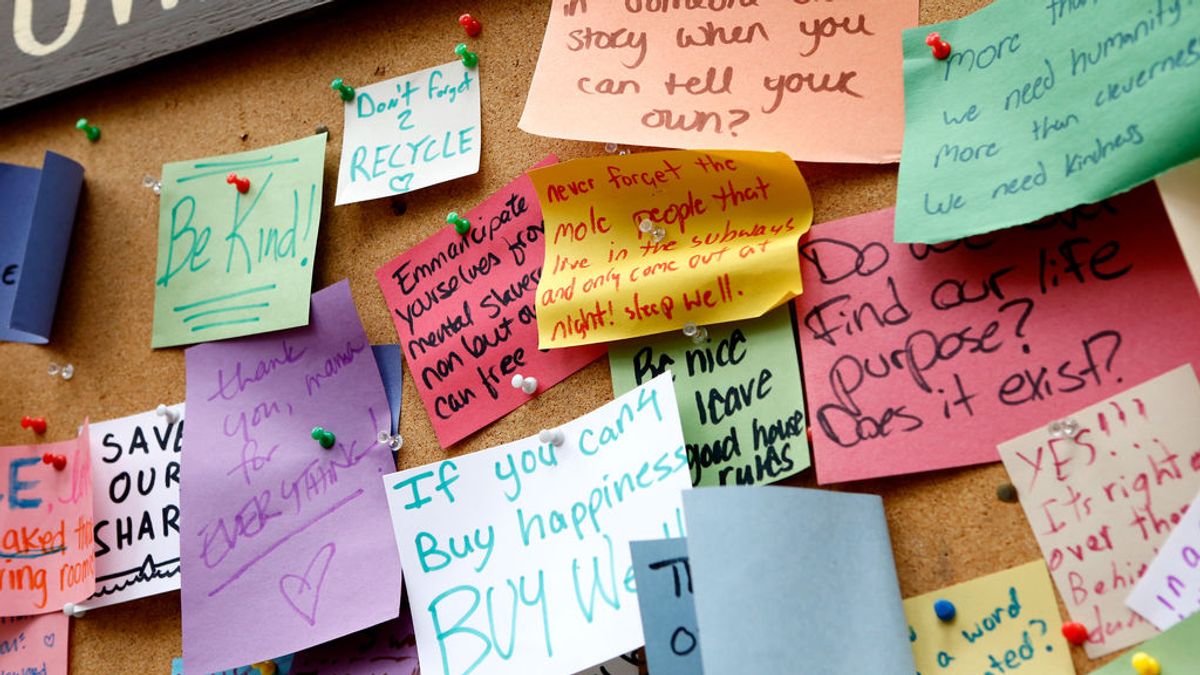 Don't forget
2
RECYCLE
Be Kind!
story when you
can tell your
own?
More
we need humanity
More than cleverness
We need kindness
never forget the
mole people that
live in the subways
and only come out at
night! sleep well.
Emmancipate
yourselves from
mental slavery
non but our
can free
Do we ever
find our life
purpose?
Does it exist?
Be nice
leave
good house
rules
thank
you, mama
for
EVERYTHING!
SAVE
OUR
SHAR
If you can4
Buy happiness
BUY We
YES!
It's right
over ther
Behi
in a
a word
E
ring room